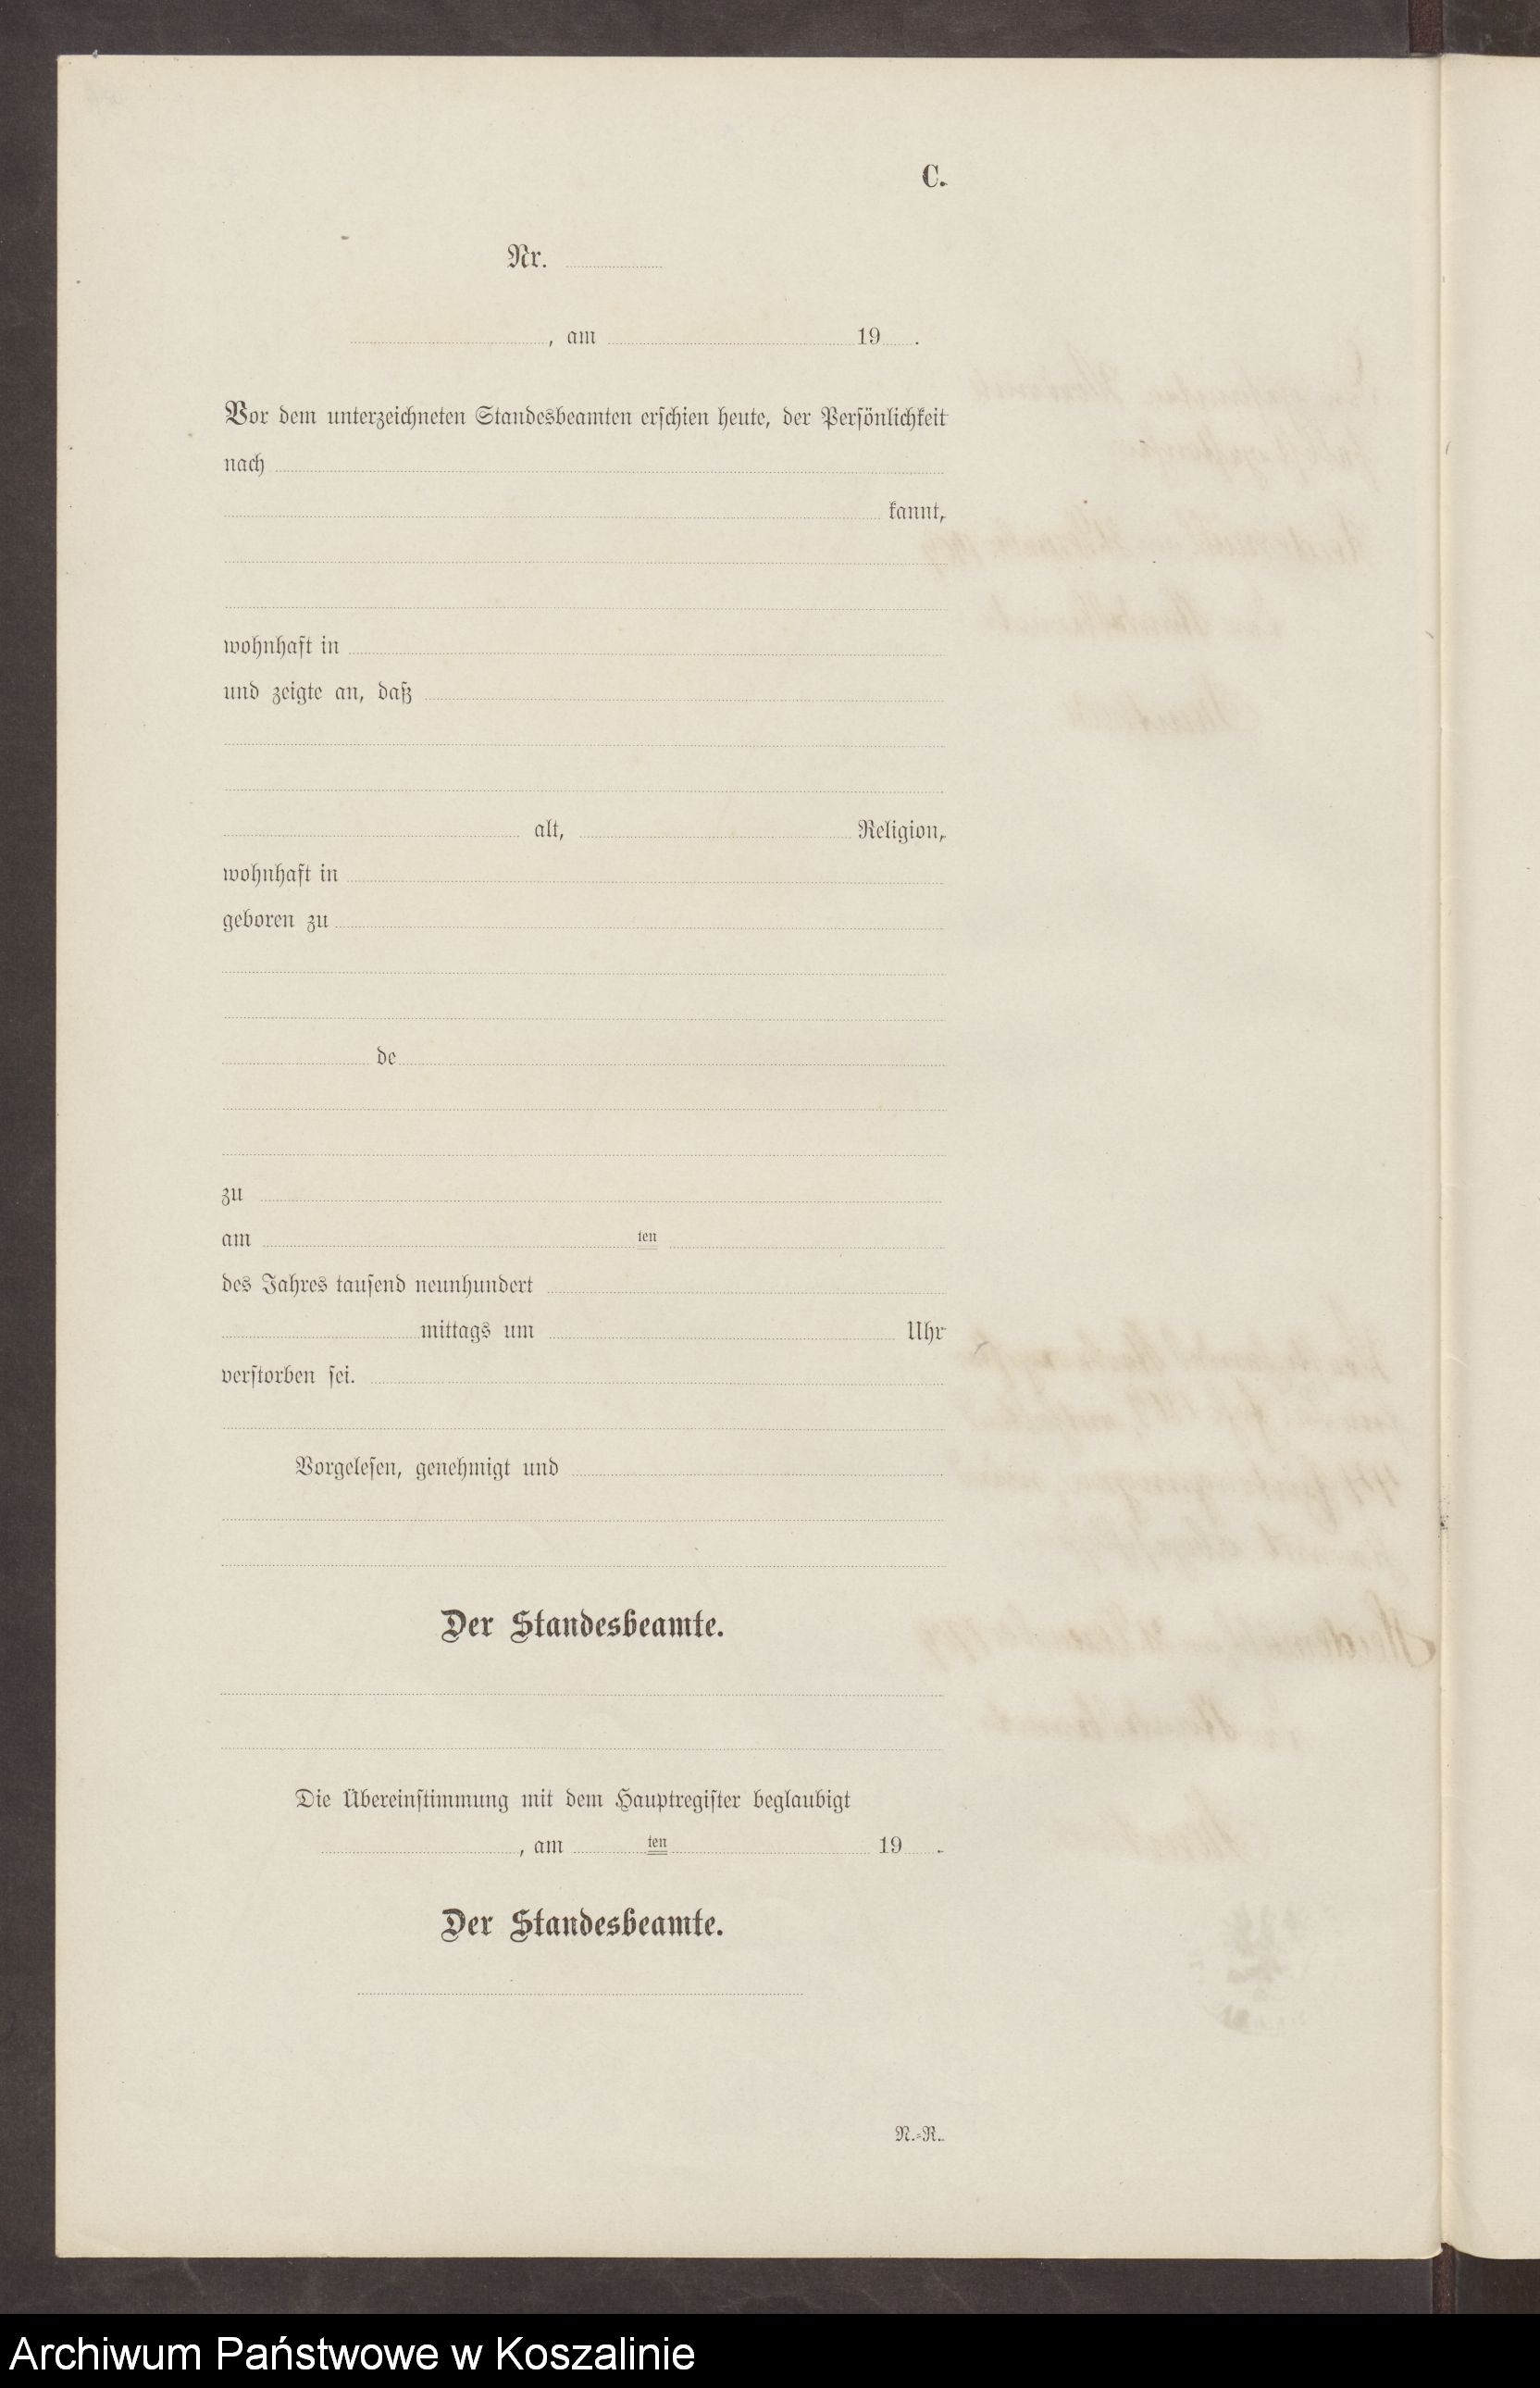 C.
Nr.
, am 19 .
Vor dem unterzeichneten Standesbeamten erschien heute, der Persönlichkeit
nach
kannt,
wohnhaft in
und zeigte an, daß
alt, Religion,
wohnhaft in
geboren zu
de
zu
am ten
des Jahres tausend neunhundert
mittags um Uhr
verstorben sei.
Vorgelesen, genehmigt und
Der Standesbeamte.
Die Übereinstimmung mit dem Hauptregister beglaubigt
, am ten 19 .
Der Standesbeamte.
N.-R.
Archiwum Państwowe w Koszalinie